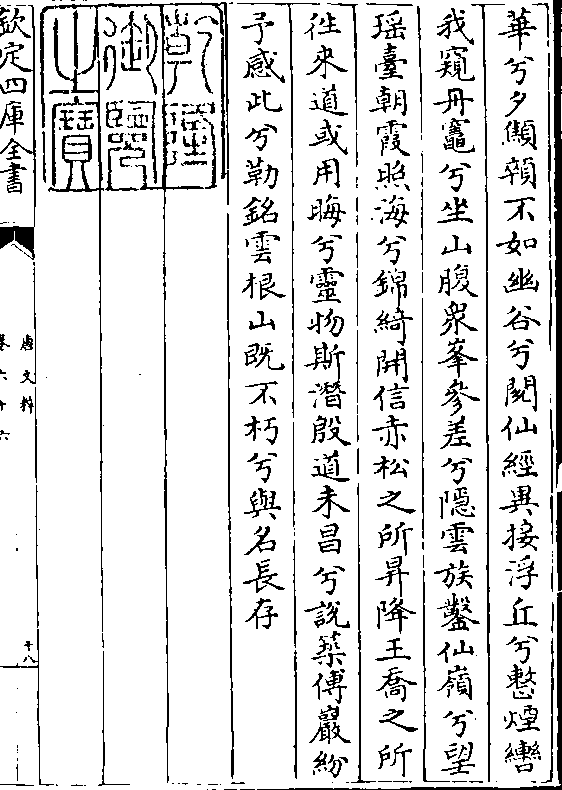 華兮夕顑頷不如幽谷兮閱仙經異接浮丘兮憩煙巒
我窺丹竈兮坐山腹衆峯參差兮隱雲族鑿仙嶺兮望
瑶臺朝霞照海兮錦綺開信赤松之所昇降王喬之所
徃來道或用晦兮靈物斯潛殷道未昌兮說築傅巖紛
予感此兮勒銘雲根山既不朽兮與名長存
乾隆
御覽
之寶
欽定四庫全書
唐文粹
卷六十六
十八